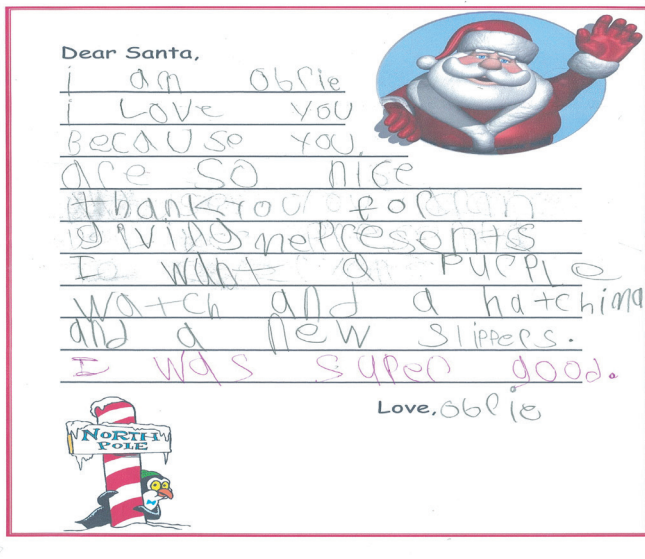 Dear Santa,
i am obrie
i LOVe YOU
BecaUSe YOU
are SO nice
thankyou for
giving mePresents
I want a PURPLe
watch and a hatchima
and a new Slippers.
I was super good.
Love, obrie
NORTH
POLE